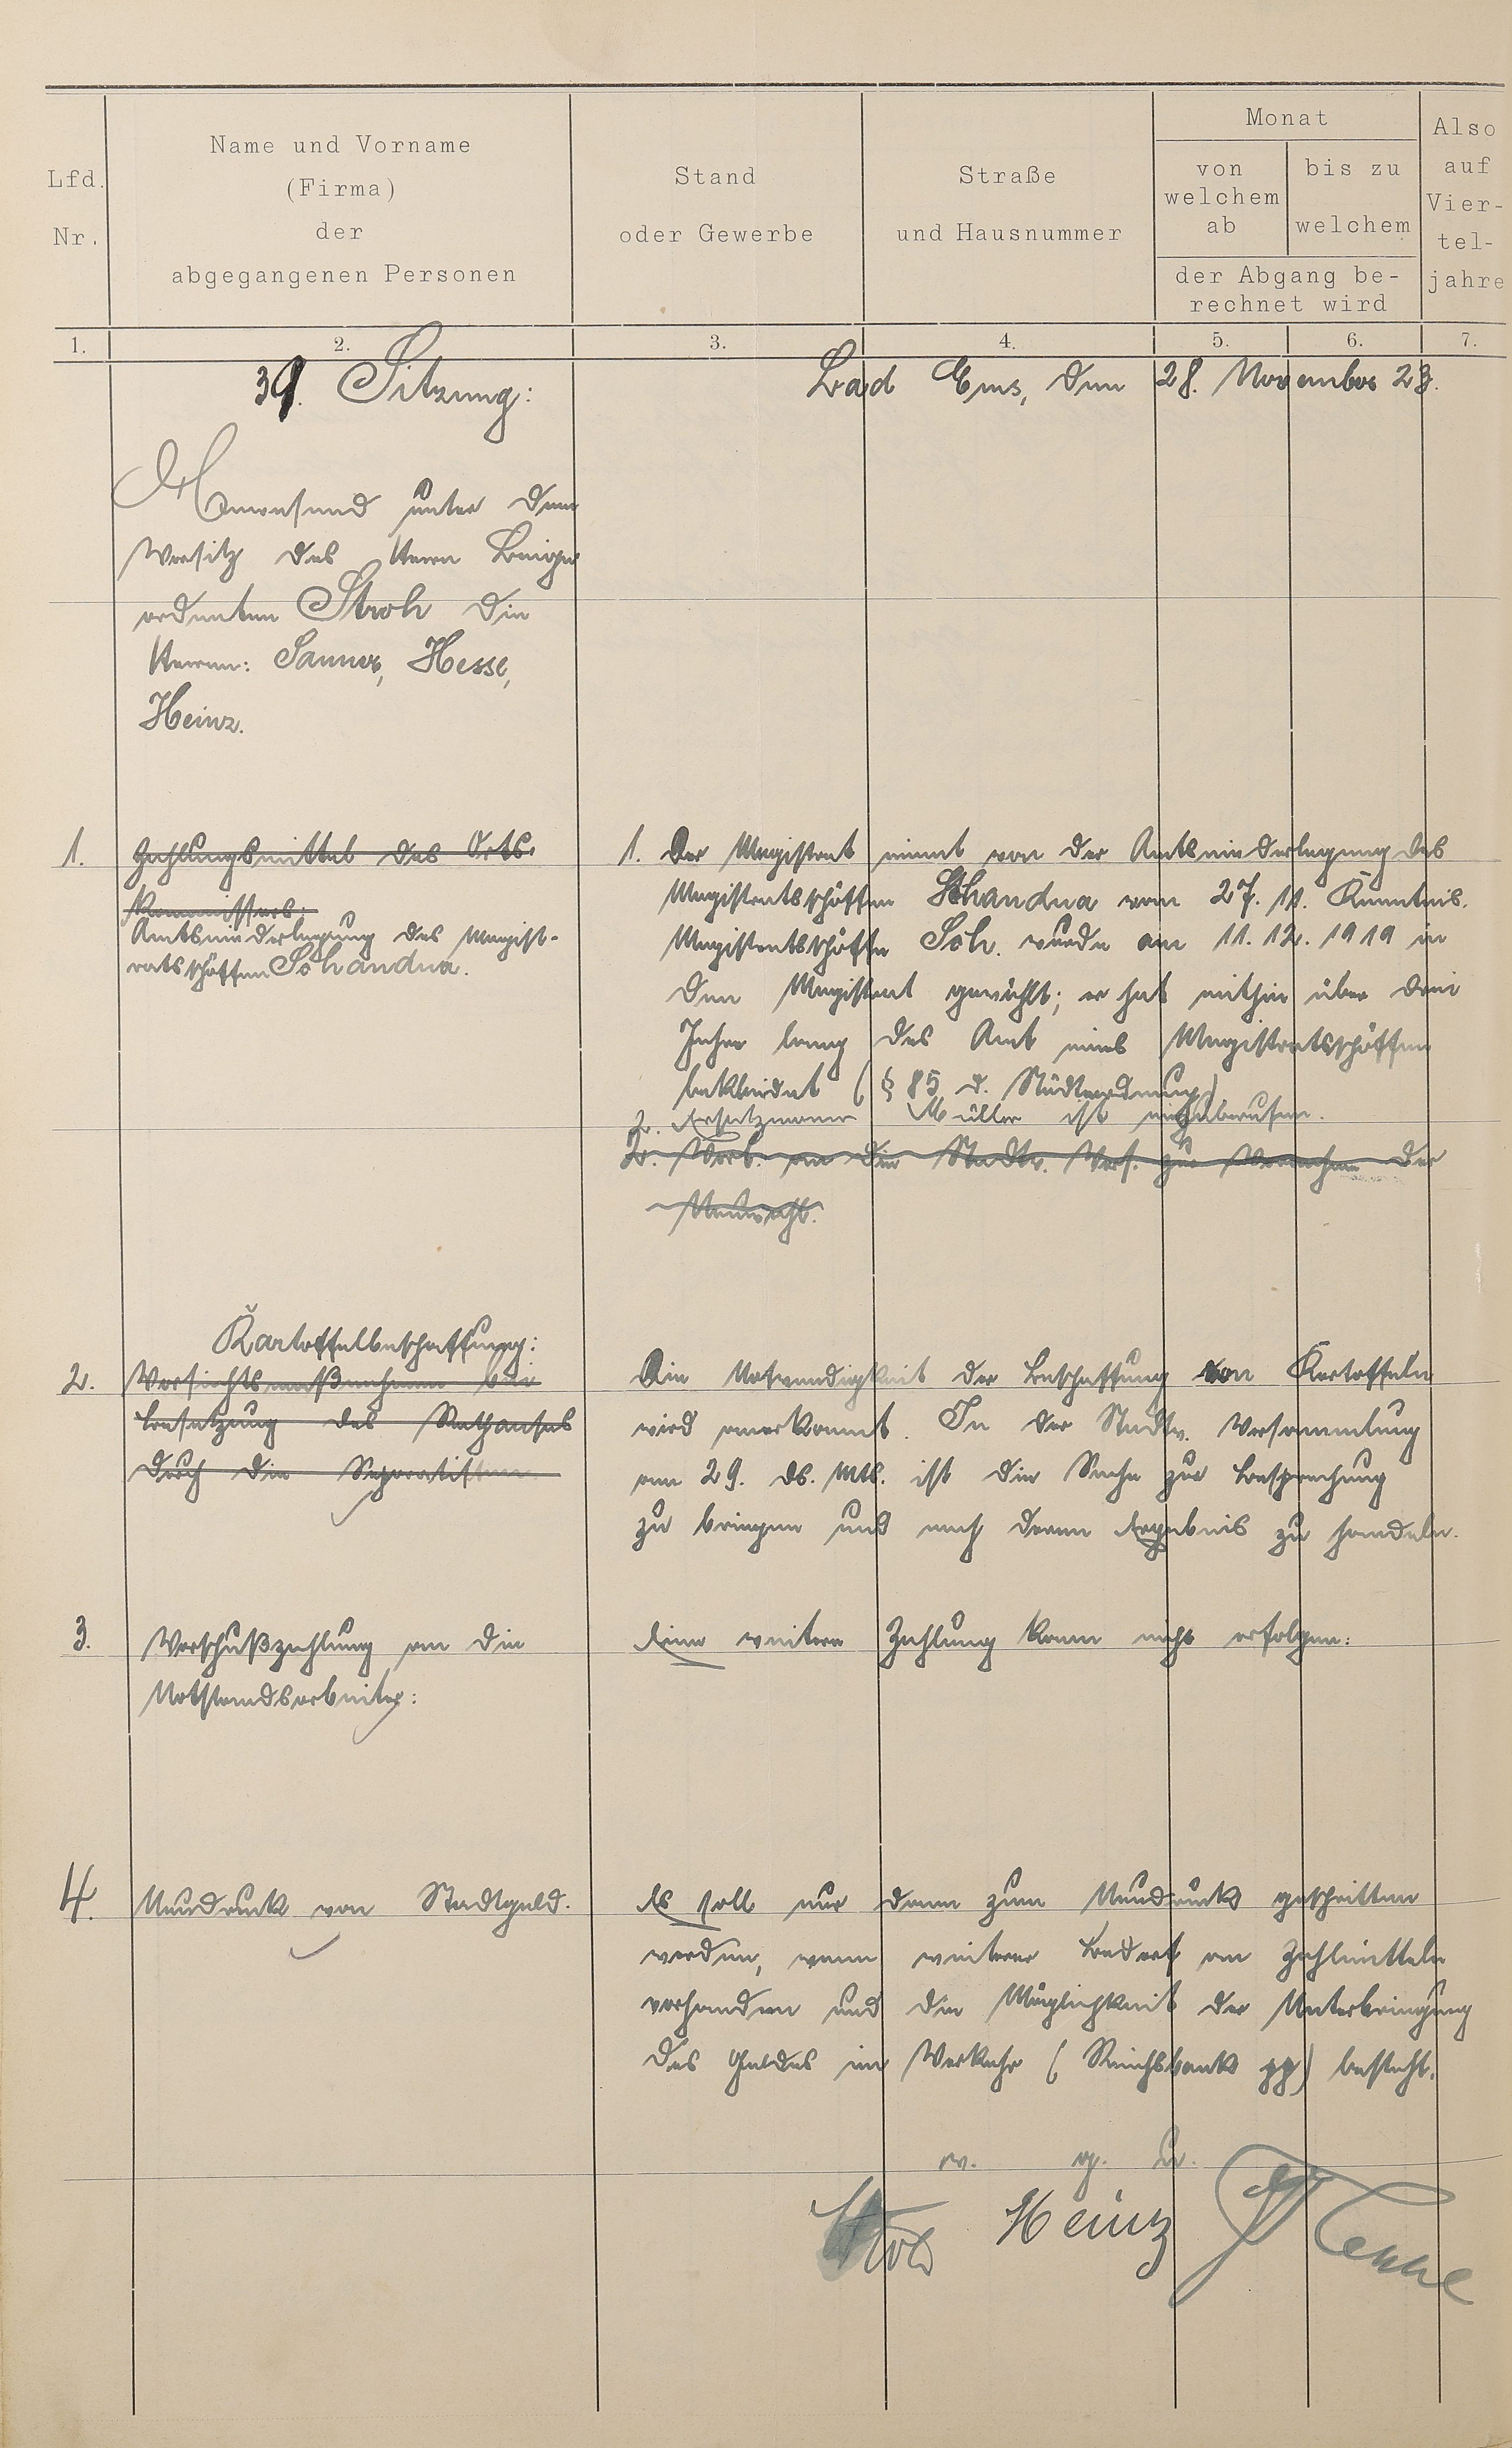 Lfd. Nr.
Name und Vorname
(Firma)
der
abgegangenen Personen
Stand
oder Gewerbe
Straße
und Hausnummer
Monat
von
welchem
ab
bis zu
welchem
der Abgang be-
rechnet wird
Also
auf
Vier-
tel-
jahre
1. 2. 3. 4. 5. 6. 7.
39. Sitzung:
Bad Ems, den 28. November 23.
Anwesend unter dem
Vorsitz des Herrn Beige
ordneten Stroh die
Herren: Sanner, Hesse,
Heinz.
1. Zahlungsmittel des Orts-
Kommissars:
Amtsniederlegung des Magist-
ratsschöffen Schandua.
1. Der Magistrat nimmt von der Amtsniederlegung des
Magistratsschöffen Schandua vom 27. 11. Kenntnis.
Magistratsschöffe Sch. wurde am 11. 12. 1919 in
den Magistrat gewählt; er hat mithin über drei
Jahre lang das Amt eines Magistratsschöffen
bekleidet (§ 85 d. Städteordnung)
2. Ersatzmann Müller ist einzuberufen.
2. Vorl. an die Stadtv. Vers. zur Vornahme der
Neuwahl.
Kartoffelbeschaffung:
2. Vorsichtsmaßnahmen bei
Besetzung des Rathauses
durch die Separatisten.
Die Notwendigkeit der Beschaffung von Kartoffeln
wird anerkannt. In der Stadtv. Versammlung
am 29. ds. Mts. ist die Sache zur Besprechung
zu bringen und nach deren Ergebnis zu handeln.
3. Vorschußzahlung an die
Notstandsarbeiter:
Eine weitere Zahlung kann nicht erfolgen.
4. Neudruck von Stadtgeld.
Es soll nur dann zum Neudruck geschritten
werden, wenn weiterer Bedarf an Zahlmitteln
vorhanden und die Möglichkeit der Unterbringung
des Geldes im Verkehr (Reichsbank pp) besteht.
v. g. u.
Stroh Heinz